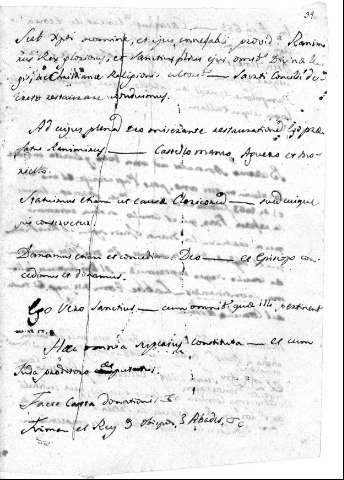 39.
Sub Xpti nomine, et ejus ineffabili provida Ranimi
rus Rex gloriosus, et Sanctius filius ejus, omnib. Divinæ le
gis, ac Christianæ Religionis — Sancti Concilii de
creto restaurare
Ad cujus plenam Deo miserante restaurationem Ego præ
fatus Ranimirus — Castello manco, Aguero et Mo
riello.
Statuimus etiam ut causæ Clericorum — suæ cuique
constructæ.
Donamus etiam et concedim. Deo — et Episcopo con
cedimus et donamus.
Ego Vero Sanctius — cum omnib. quæ illi pertinent
Hæc omnia superius constituta — et cum
Juda proditore
Facta Carta donationis
Firman el Rey 9 Obispos, 3 Abades, &c